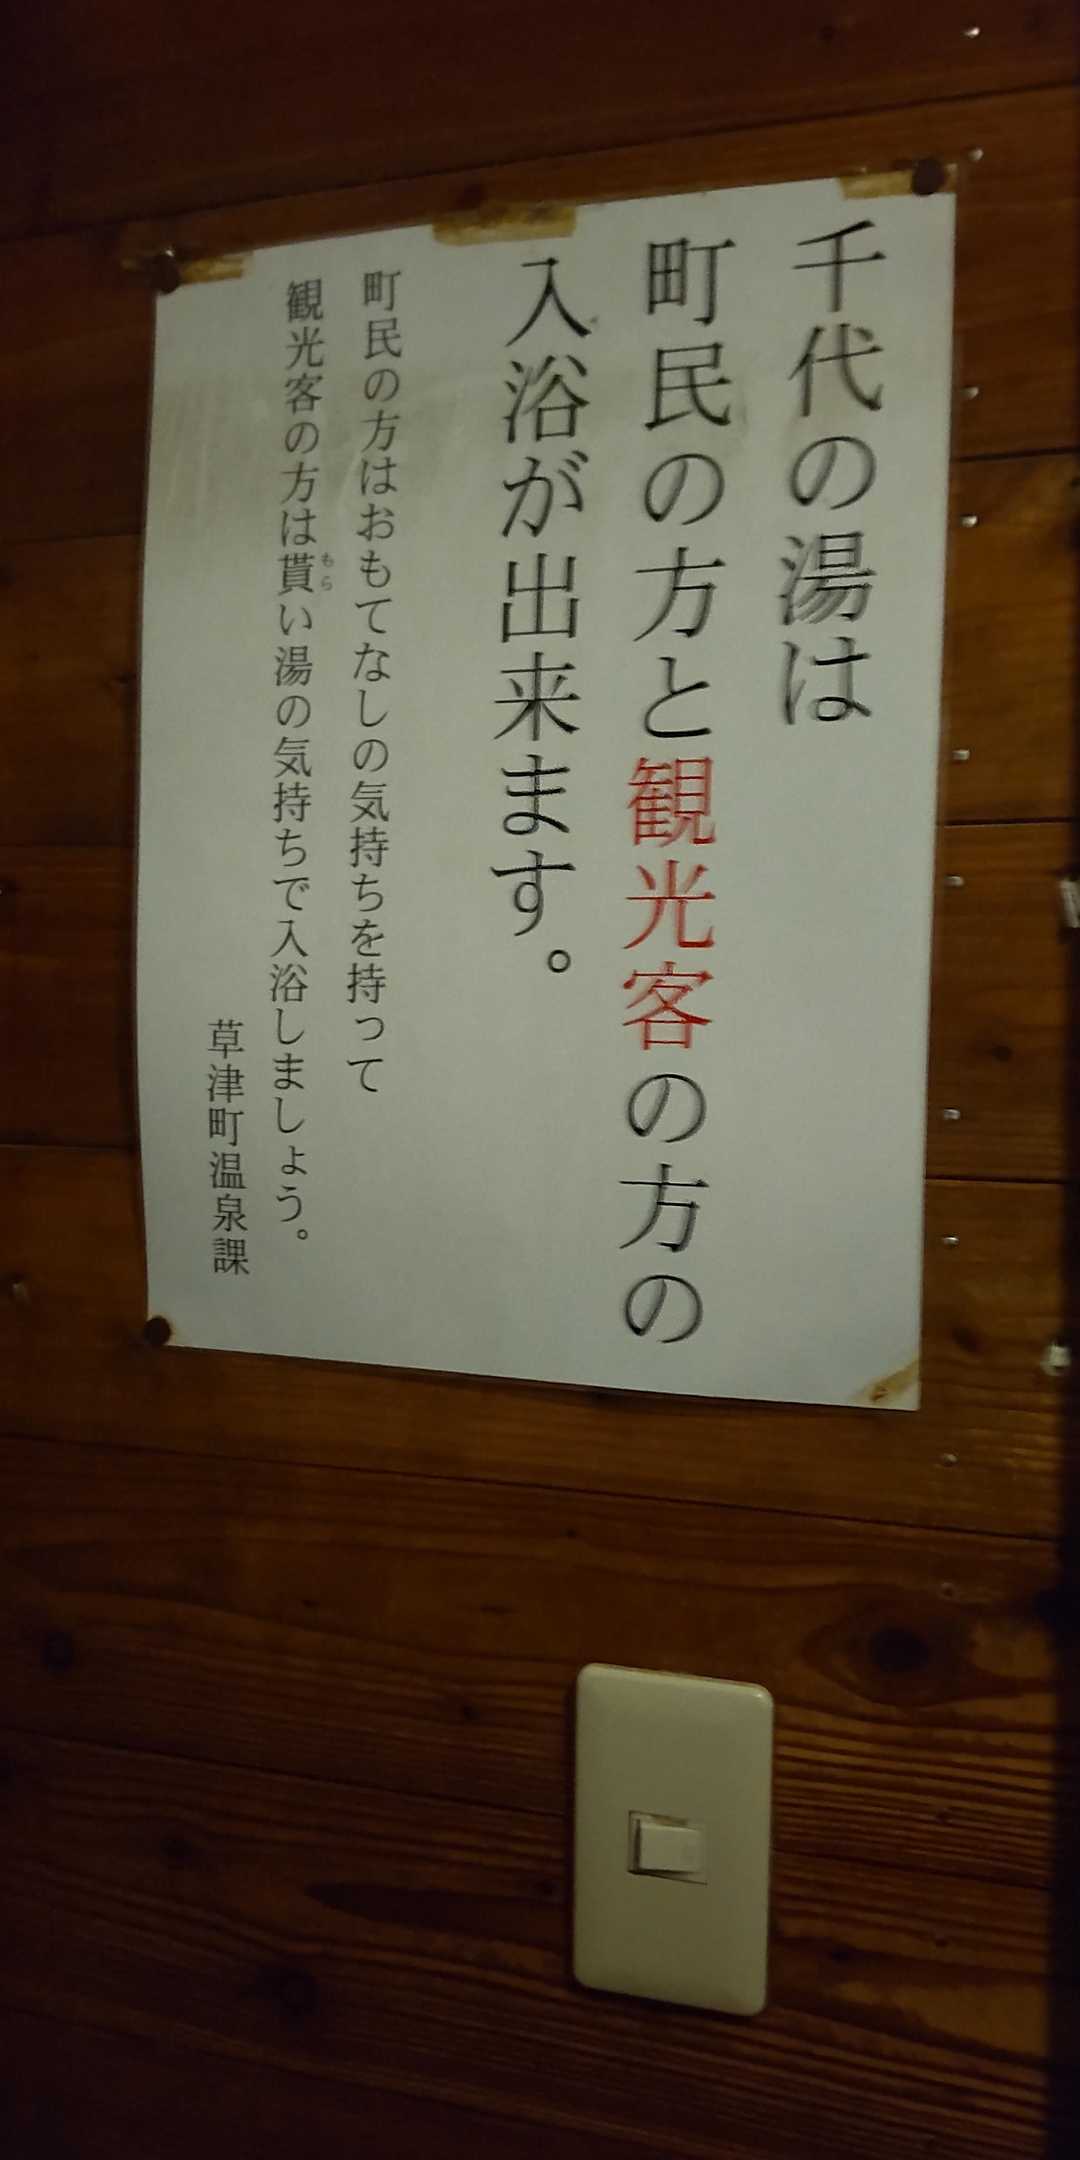 千代の湯は
町民の方と観光客の方の
入浴が出来ます。
町民の方はおもてなしの気持ちを持って
観光客の方は貰い湯の気持ちで入浴しましょう。
もら
草津町温泉課